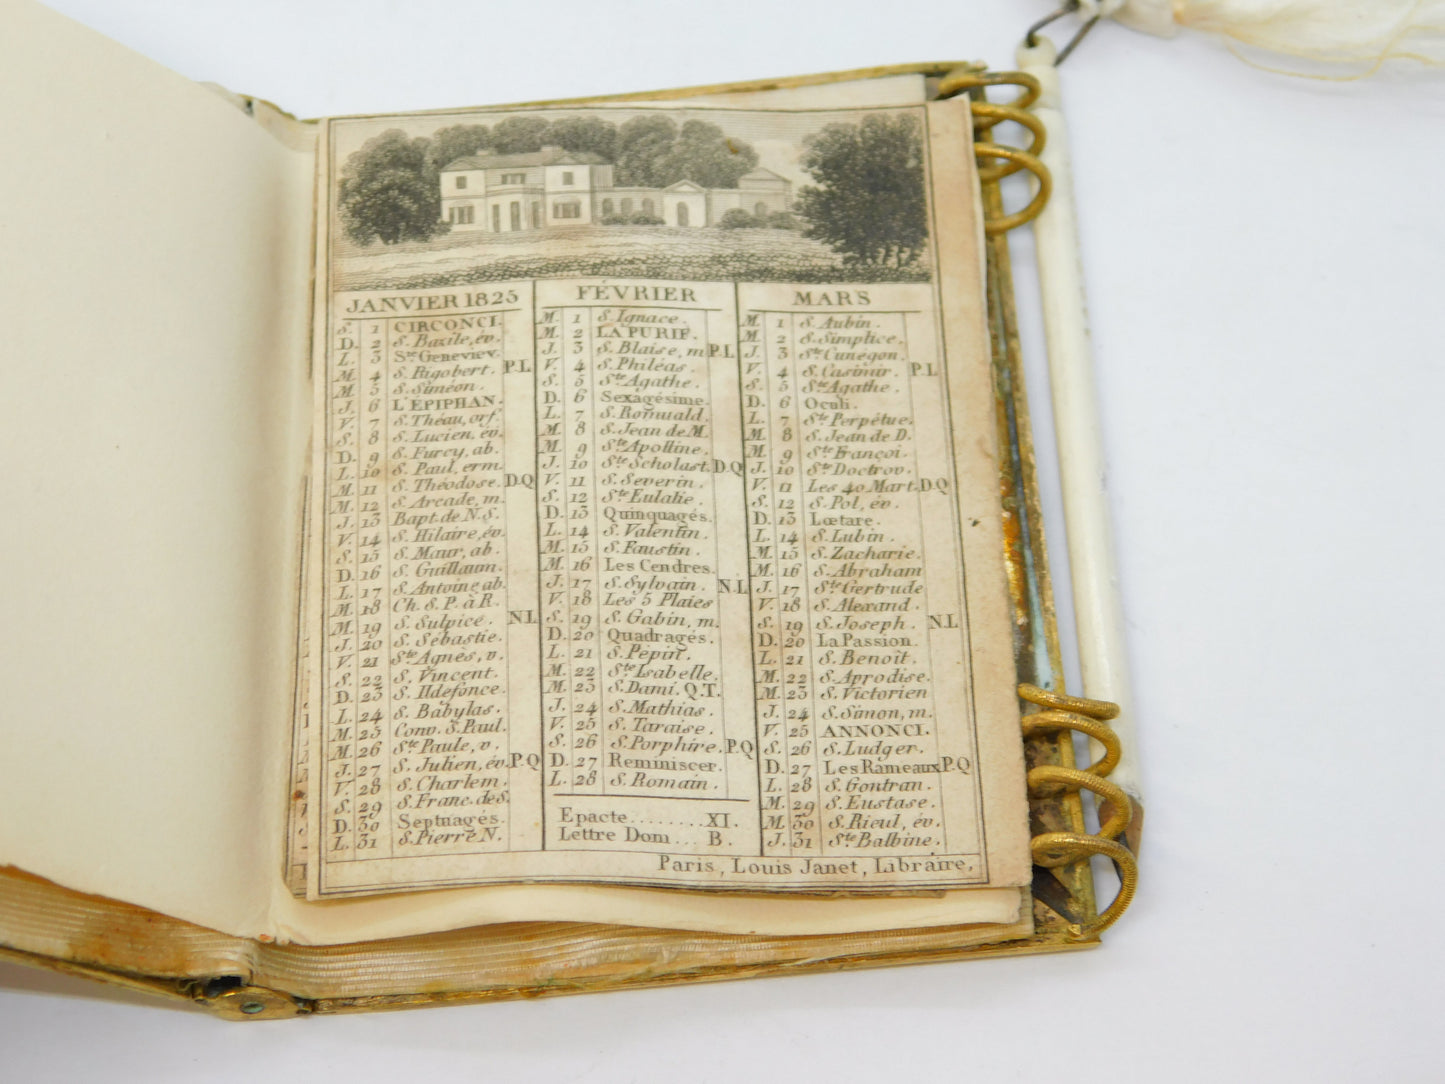 JANVIER 1825
S. 1 CIRCONCI.
D. 2 S. Bazile, év.
L. 3 Ste Geneviev.
M. 4 S. Rigobert. P.L
M. 5 S. Siméon.
J. 6 L'ÉPIPHAN.
V. 7 S. Théau, orf.
S. 8 S. Lucien, év.
D. 9 S. Furcy, ab.
L. 10 S. Paul, erm.
M. 11 S. Théodose. D.Q
M. 12 S. Arcade, m.
J. 13 Bapt. de N.S.
V. 14 S. Hilaire, év.
S. 15 S. Maur, ab.
D. 16 S. Guillaum.
L. 17 S. Antoine ab.
M. 18 Ch. S. P. à R.
M. 19 S. Sulpice. N.L
J. 20 S. Sébastie.
V. 21 Ste Agnés, v.
S. 22 S. Vincent.
D. 23 S. Ildefonce.
L. 24 S. Babylas.
M. 25 Conv. S. Paul.
M. 26 Ste Paule, v.
J. 27 S. Julien, év. P.Q
V. 28 S. Charlem.
S. 29 S. Franc. de S.
D. 30 Septuagés.
L. 31 S. Pierre N.
FÉVRIER
M. 1 S. Ignace.
M. 2 LA PURIF.
J. 3 S. Blaise, m P.L
V. 4 S. Philéas.
S. 5 Ste Agathe.
D. 6 Sexagésime.
L. 7 S. Romuald.
M. 8 S. Jean de M.
M. 9 Ste Apolline.
J. 10 Ste Scholast. D.Q
V. 11 S. Severin.
S. 12 Ste Eulalie.
D. 13 Quinquagés.
L. 14 S. Valentin.
M. 15 S. Faustin.
M. 16 Les Cendres.
J. 17 S. Sylvain. N.L
V. 18 Les 5 Plaies
S. 19 S. Gabin, m.
D. 20 Quadragés.
L. 21 S. Pépin.
M. 22 Ste Isabelle.
M. 23 S. Dami. Q.T.
J. 24 S. Mathias.
V. 25 S. Taraise.
S. 26 S. Porphire. P.Q
D. 27 Reminiscer.
L. 28 S. Romain.
Epacte........XI.
Lettre Dom... B.
MARS
M. 1 S. Aubin.
M. 2 S. Simplice.
J. 3 Ste Cunegon.
V. 4 S. Casimir. P.L
S. 5 Ste Agathe.
D. 6 Oculi.
L. 7 Ste Perpétue.
M. 8 S. Jean de D.
M. 9 Ste Françoi.
J. 10 Ste Doctrov.
V. 11 Les 40 Mart. D.Q
S. 12 S. Pol, év.
D. 13 Lœtare.
L. 14 S. Lubin.
M. 15 S. Zacharie.
M. 16 S. Abraham
J. 17 Ste Gertrude
V. 18 S. Alexand.
S. 19 S. Joseph. N.L
D. 20 La Passion.
L. 21 S. Benoît.
M. 22 S. Aprodise.
M. 23 S. Victorien
J. 24 S. Simon, m.
V. 25 ANNONCI.
S. 26 S. Ludger.
D. 27 Les Rameaux P.Q
L. 28 S. Gontran.
M. 29 S. Eustase.
M. 30 S. Rieul, év.
J. 31 Ste Balbine.
Paris, Louis Janet, Libraire,